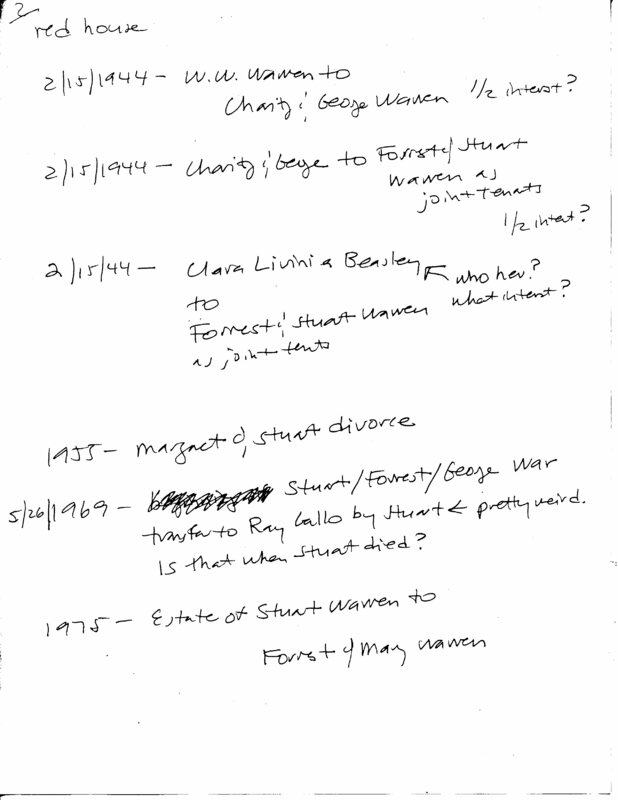 2
red house
2/15/1944 - W.W. Warren to
Charity & George Warren 1/2 interest?
2/15/1944 - Charity & George to Forrest & Stuart
Warren as
joint tenants
1/2 interest?
2/15/44 - Clara Livinia Beasley ← who her?
to what interest?
Forrest & Stuart Warren
as joint tents
1955 - Margaret & Stuart divorce
5/26/1969 - Stuart/Forrest/George War
transfer to Ray Gallo by Stuart ← pretty weird.
Is that when Stuart died?
1975 - Estate of Stuart Warren to
Forrest & May Warren